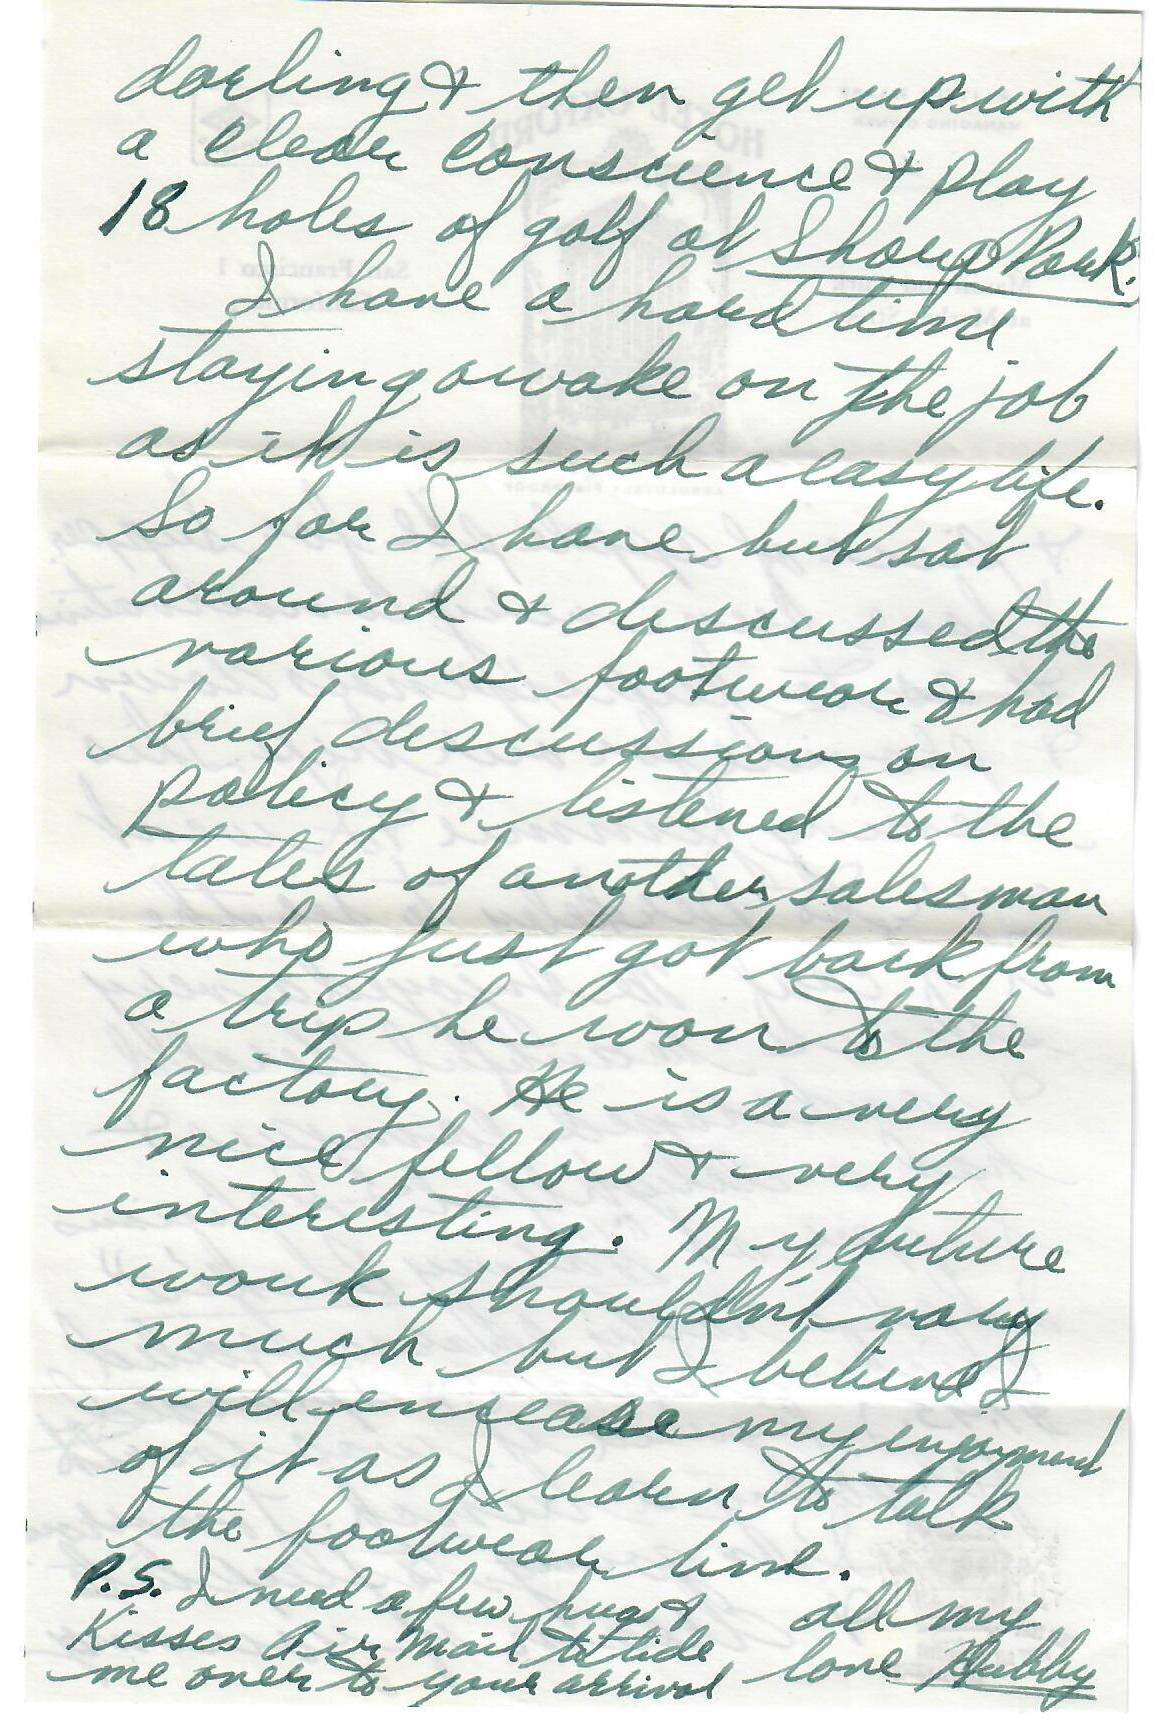 darling & then get up with
a clear conscience & play
18 holes of golf at Sharp Park.
I have a hard time
staying awake on the job
as it is such a easy life.
So far I have but sat
around & discussed the
various footwear & had
brief discussions on
policy & listened to the
tales of another salesman
who just got back from
a trip he won to the
factory. He is a very
nice fellow & very
interesting. My future
work shouldn't vary
much but I believe I
will encease my enjoyment
of it as I learn to talk
the footwear line.
all my
love Hubby
P.S. I need a few hugs &
Kisses Air Mail to tide
me over to your arrival